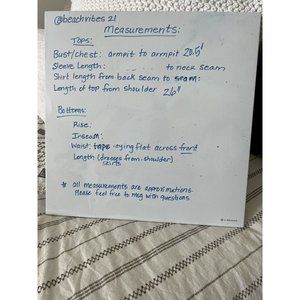 @beachvibes21
Measurements:
Tops:
Bust/chest: armpit to armpit 20.5"
Sleeve Length: to neck seam
Shirt length from back seam to seam:
Length of top from shoulder 26"
Bottoms:
Rise:
Inseam:
Waist: tape laying flat across front
Length (dresses from shoulder)
skirts
* all measurements are approximations.
Please feel free to msg with questions